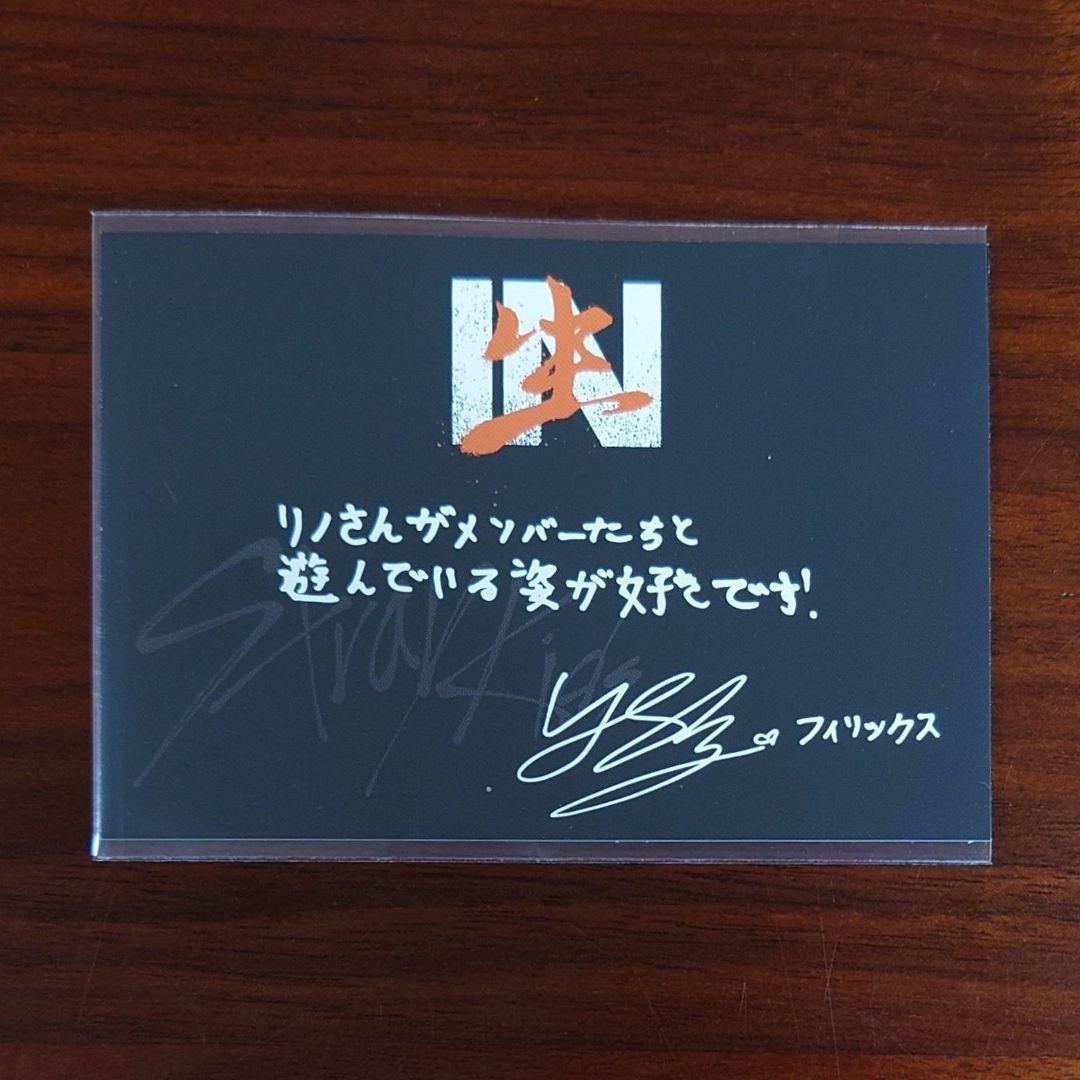 IN生
リノさんがメンバーたちと
遊んでいる姿が好きです!
Stray Kids
フィリックス